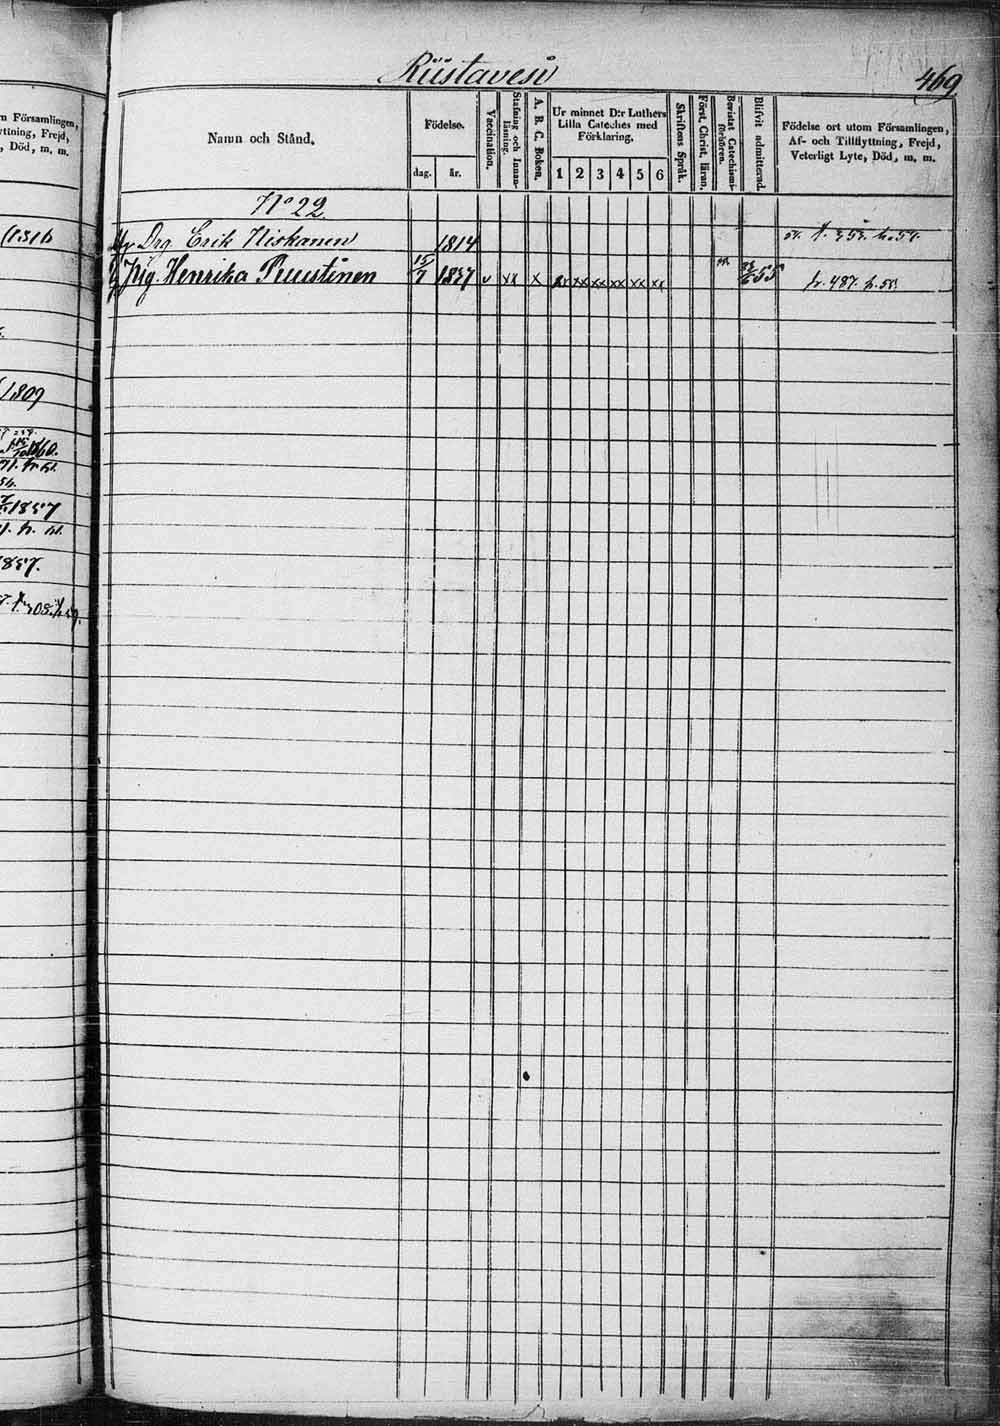 Riistavesi
469
n Församlingen,
yttning, Frejd,
, Död, m. m.
Namn och Stånd.
Födelse.
dag.
år.
Vaccination.
Stafning och Innanläsning.
A. B. C. Boken.
Ur minnet D:r Luthers
Lilla Cateches med
Förklaring.
1 2 3 4 5 6
Skriftens Språk.
Först. Christ. läran.
Bevistat Catechismiförhören.
Blifvit admitterad.
Födelse ort utom Församlingen,
Af- och Tillflyttning, Frejd,
Veterligt Lyte, Död, m. m.
No 22
Drg. Erik Niskanen 1814
Pig. Henrika Puustinen 15/7 1837 v xx x xx xx xx xx xx xx 55 p. 487.
1809
1857
1857.